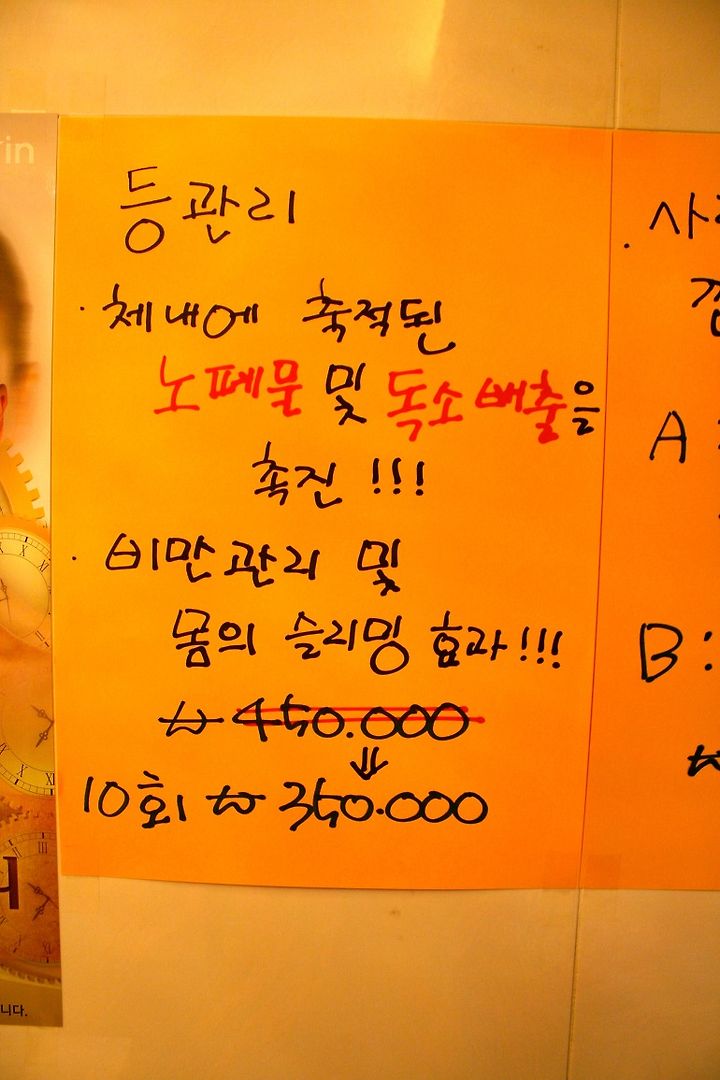 in
등관리
· 체내에 축적된
노폐물 및 독소배출을
촉진!!!
· 비만관리 및
몸의 슬리밍 효과!!!
₩ 450.000
⇓
10회 ₩ 350.000
니다.
· 사
A
B:
₩